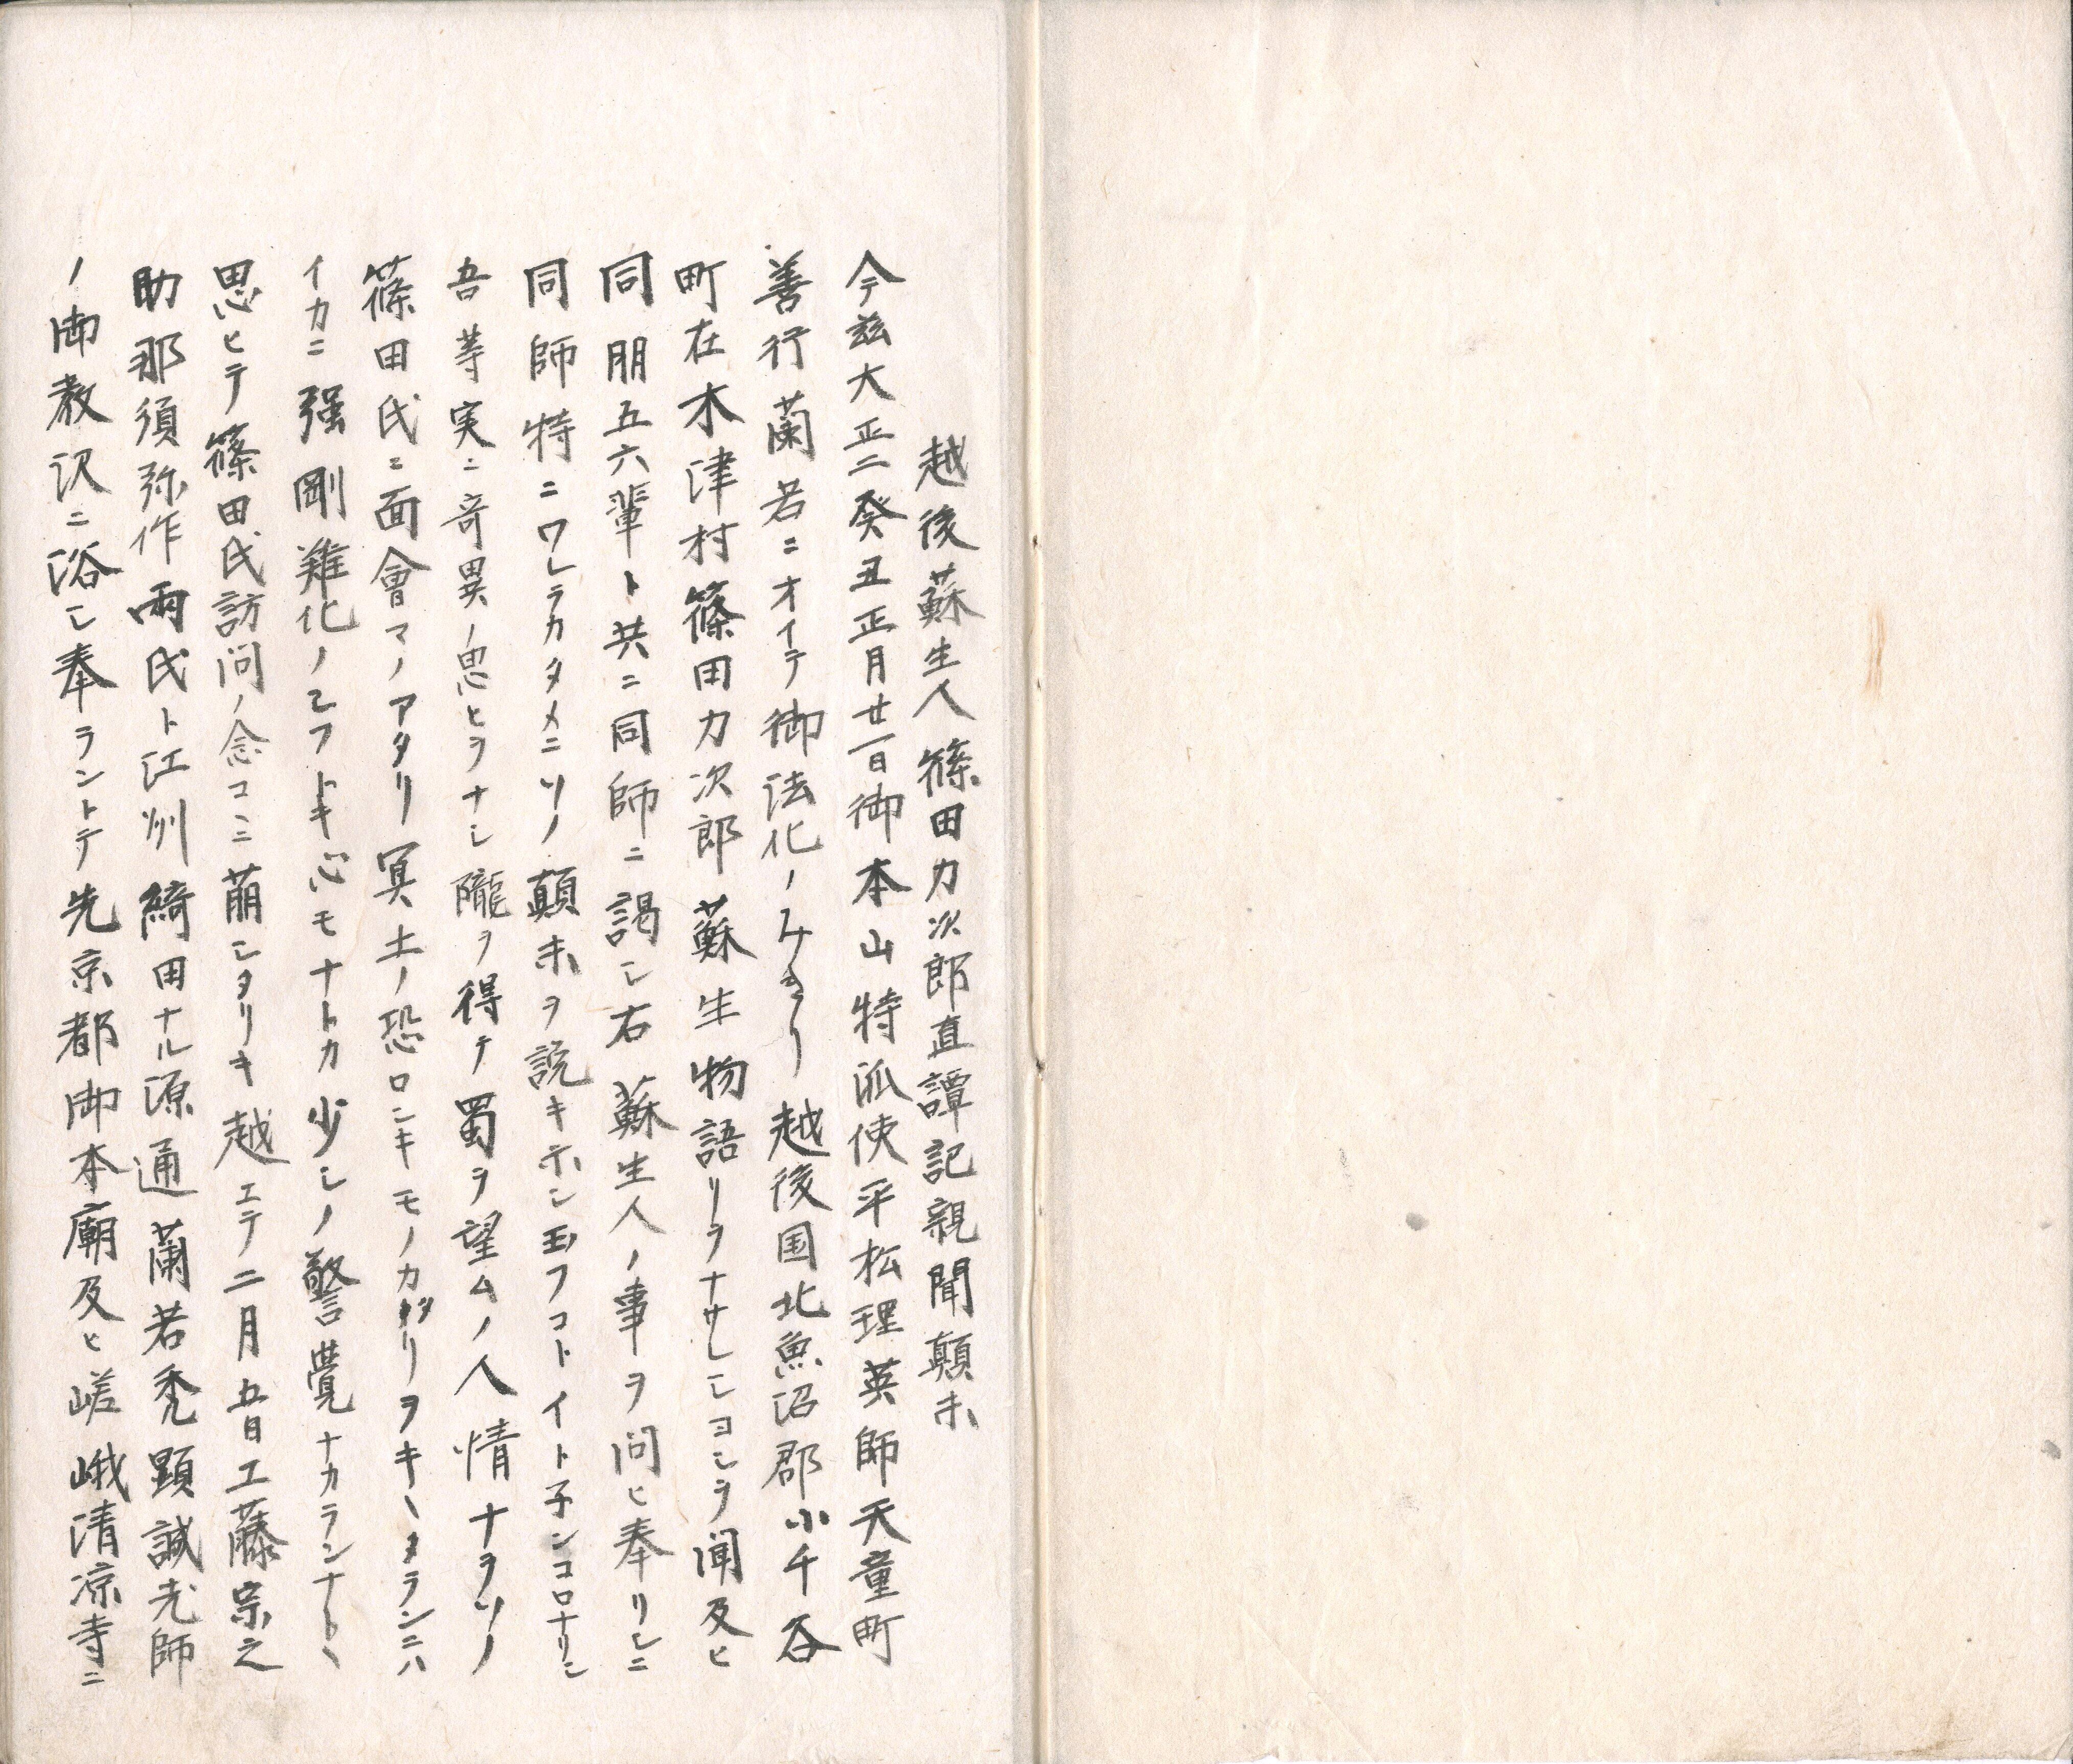 越後蘇生人篠田力次郎直譚記親聞顛末
今茲大正二癸丑正月廿一日御本山特派使平松理英師天童町
善行蘭若ニオイテ御法化ノみきり越後国北魚沼郡小千谷
町在木津村篠田力次郎蘇生物語リヲナサレシヨシヲ聞及ヒ
同朋五六輩ト共ニ同師ニ謁シ右蘇生人ノ事ヲ問ヒ奉リシニ
同師特ニワレラカタメニソノ顛末ヲ説キ示シ玉フコトイト子ンコロナリシ
吾等実ニ奇異ノ思ヒヲナシ隴ヲ得テ蜀ヲ望ムノ人情ナヲソノ
篠田氏ニ面會マノアタリ冥土ノ恐ロシキモノカタリヲキヽタランニハ
イカニ强剛難化ノ乙フトキ心モナトカ少シノ警覺ナカランナト丶
思ヒテ篠田氏訪問ノ念コヽニ萠シタリキ越エテ二月五日工藤宗之
助那須弥作両氏ト江州綺田ナル源通蘭若禿顕誠老師
ノ御教沢ニ浴シ奉ラントテ先京都御本廟及ヒ嵯峨清凉寺ニ